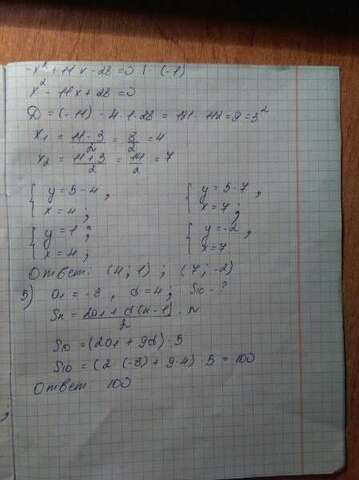 -x² + 11x - 28 = 0 | (-1)
x² - 11x + 28 = 0
D = (-11) - 4 · 1 · 28 = 121 - 112 = 9 = 3²
x₁ = (11 - 3)/2 = 8/2 = 4
x₂ = (11 + 3)/2 = 14/2 = 7
{ y = 5 - 4, x = 4; { y = 5 - 7, x = 7;
{ y = 1; x = 4; { y = -2, x = 7
Ответ: (4; 1) ; (7; -2)
5) a₁ = -8, d = 4; S₁₀ - ?
Sn = (2a₁ + d(n - 1))/2 · n
S₁₀ = (2a₁ + 9d) · 5
S₁₀ = (2 · (-8) + 9 · 4) · 5 = 100
Ответ 100